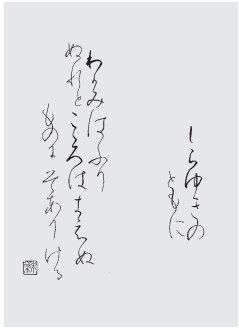 しらゆきの
ともに
わかみはふり
ぬれとこころはきえぬ
ものにそありける